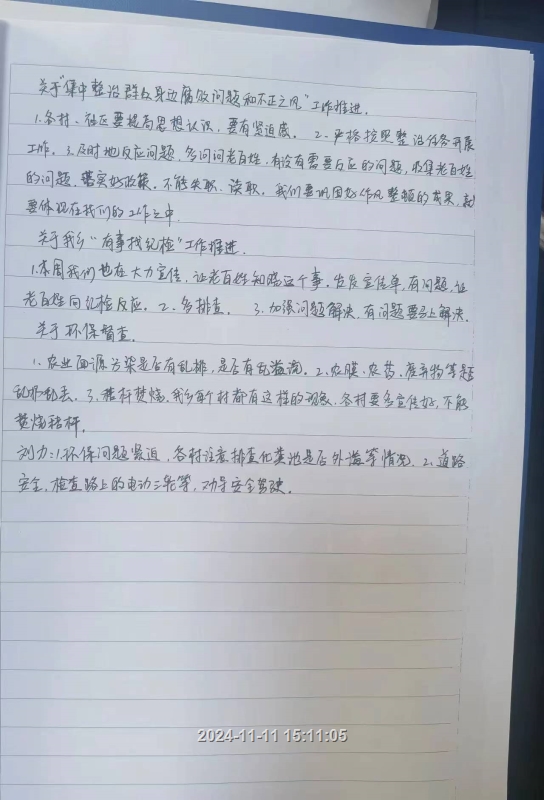 关于“集中整治群众身边腐败问题和不正之风”工作推进.
1.各村、社区要提高思想认识,要有紧迫感. 2、严格按照整治任务开展
工作. 3.及时地反应问题,多问问老百姓,有没有需要反应的问题,收集老百姓
的问题.落实好政策.不能失职、渎职.我们要巩固好作风整顿的成果,就
要体现在我们的工作之中
关于我乡“有事找纪检”工作推进.
1.本周我们也在大力宣传,让老百姓知晓这个事.发发宣传单,有问题,让
老百姓向纪检反应. 2、多排查. 3.加强问题解决.有问题要马上解决.
关于环保督查.
1、农业面源污染是否有乱排,是否有乱溢流. 2、农膜、农药、废弃物等是
乱扔乱丢. 3.秸秆焚烧.我乡每个村都有这样的现象.各村要多宣传好,不能
焚烧秸秆.
刘力:1.环保问题紧迫,各村注意排查化粪池是否外溢等情况. 2、道路
安全.检查路上的电动三轮等,劝导安全驾驶.
2024-11-11 15:11:05